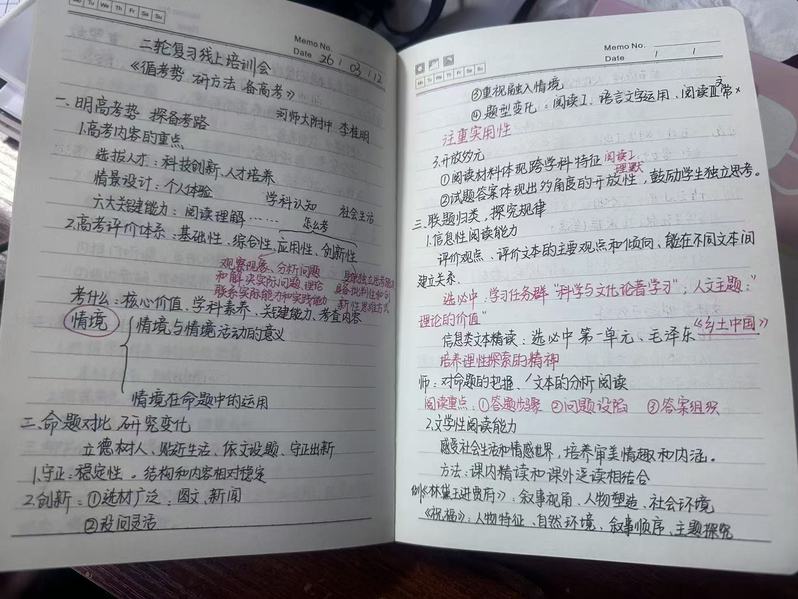 Mo Tu We Th Fr Sa Su
Memo No.
Date 26 / 03 / 12
二轮复习线上培训会
《循考势 研方法 备高考》
河师大附中 李桂明
一、明高考势 探备考路
1.高考内容的重点
选拔人才：科技创新、人才培养
情景设计：个人体验 学科认知 社会生活
六大关键能力：阅读理解…… 怎么考
2.高考评价体系：基础性、综合性、应用性、创新性
观察现象、分析问题
和解决实际问题、理论
联系实际能力和实践能力
独立思考能力
具备批判性和创
新性思维方式
考什么：核心价值、学科素养、关键能力、考查内容
情境
情境与情境活动的意义
情境在命题中的运用
二、命题对比 研究变化
立德树人、贴近生活、依文设题、守正出新
1.守正：稳定性。结构和内容相对稳定
2.创新：①选材广泛：图文、新闻
②设问灵活
Memo No.
Date / /
Mo Tu We Th Fr Sa Su
③重视融入情境
④题型变化：阅读I、语言文字运用、阅读II
注重实用性
3.开放多元
①阅读材料体现跨学科特征 阅读I
理默
②试题答案体现出多角度的开放性，鼓励学生独立思考。
三、联题归类，探究规律
1.信息性阅读能力
评价观点、评价文本的主要观点和倾向，能在不同文本间
建立关系.
选必中：学习任务群“科学与文化论著学习”；人文主题：“
理论的价值”
信息类文本精读：选必中第一单元、毛泽东《乡土中国》
培养理性探索的精神
师：对命题的把握、文本的分析阅读
阅读重点：①答题步骤 ②问题设陷 ③答案组织
2.文学性阅读能力
感受社会生活和情感世界，培养审美情趣和内涵。
方法：课内精读和课外泛读相结合
例《林黛玉进贾府》：叙事视角、人物塑造、社会环境
《祝福》：人物特征、自然环境、叙事顺序、主题探究